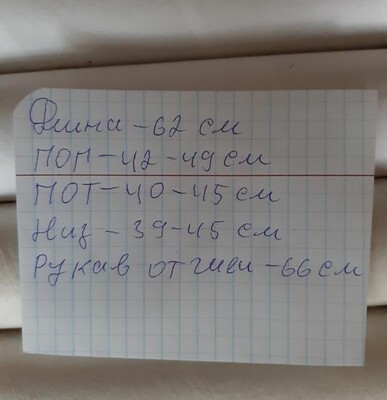 Длина - 62 см
ПОГ - 42 - 49 см
ПОТ - 40 - 45 см
Низ - 39 - 45 см
Рукав от шеи - 66 см